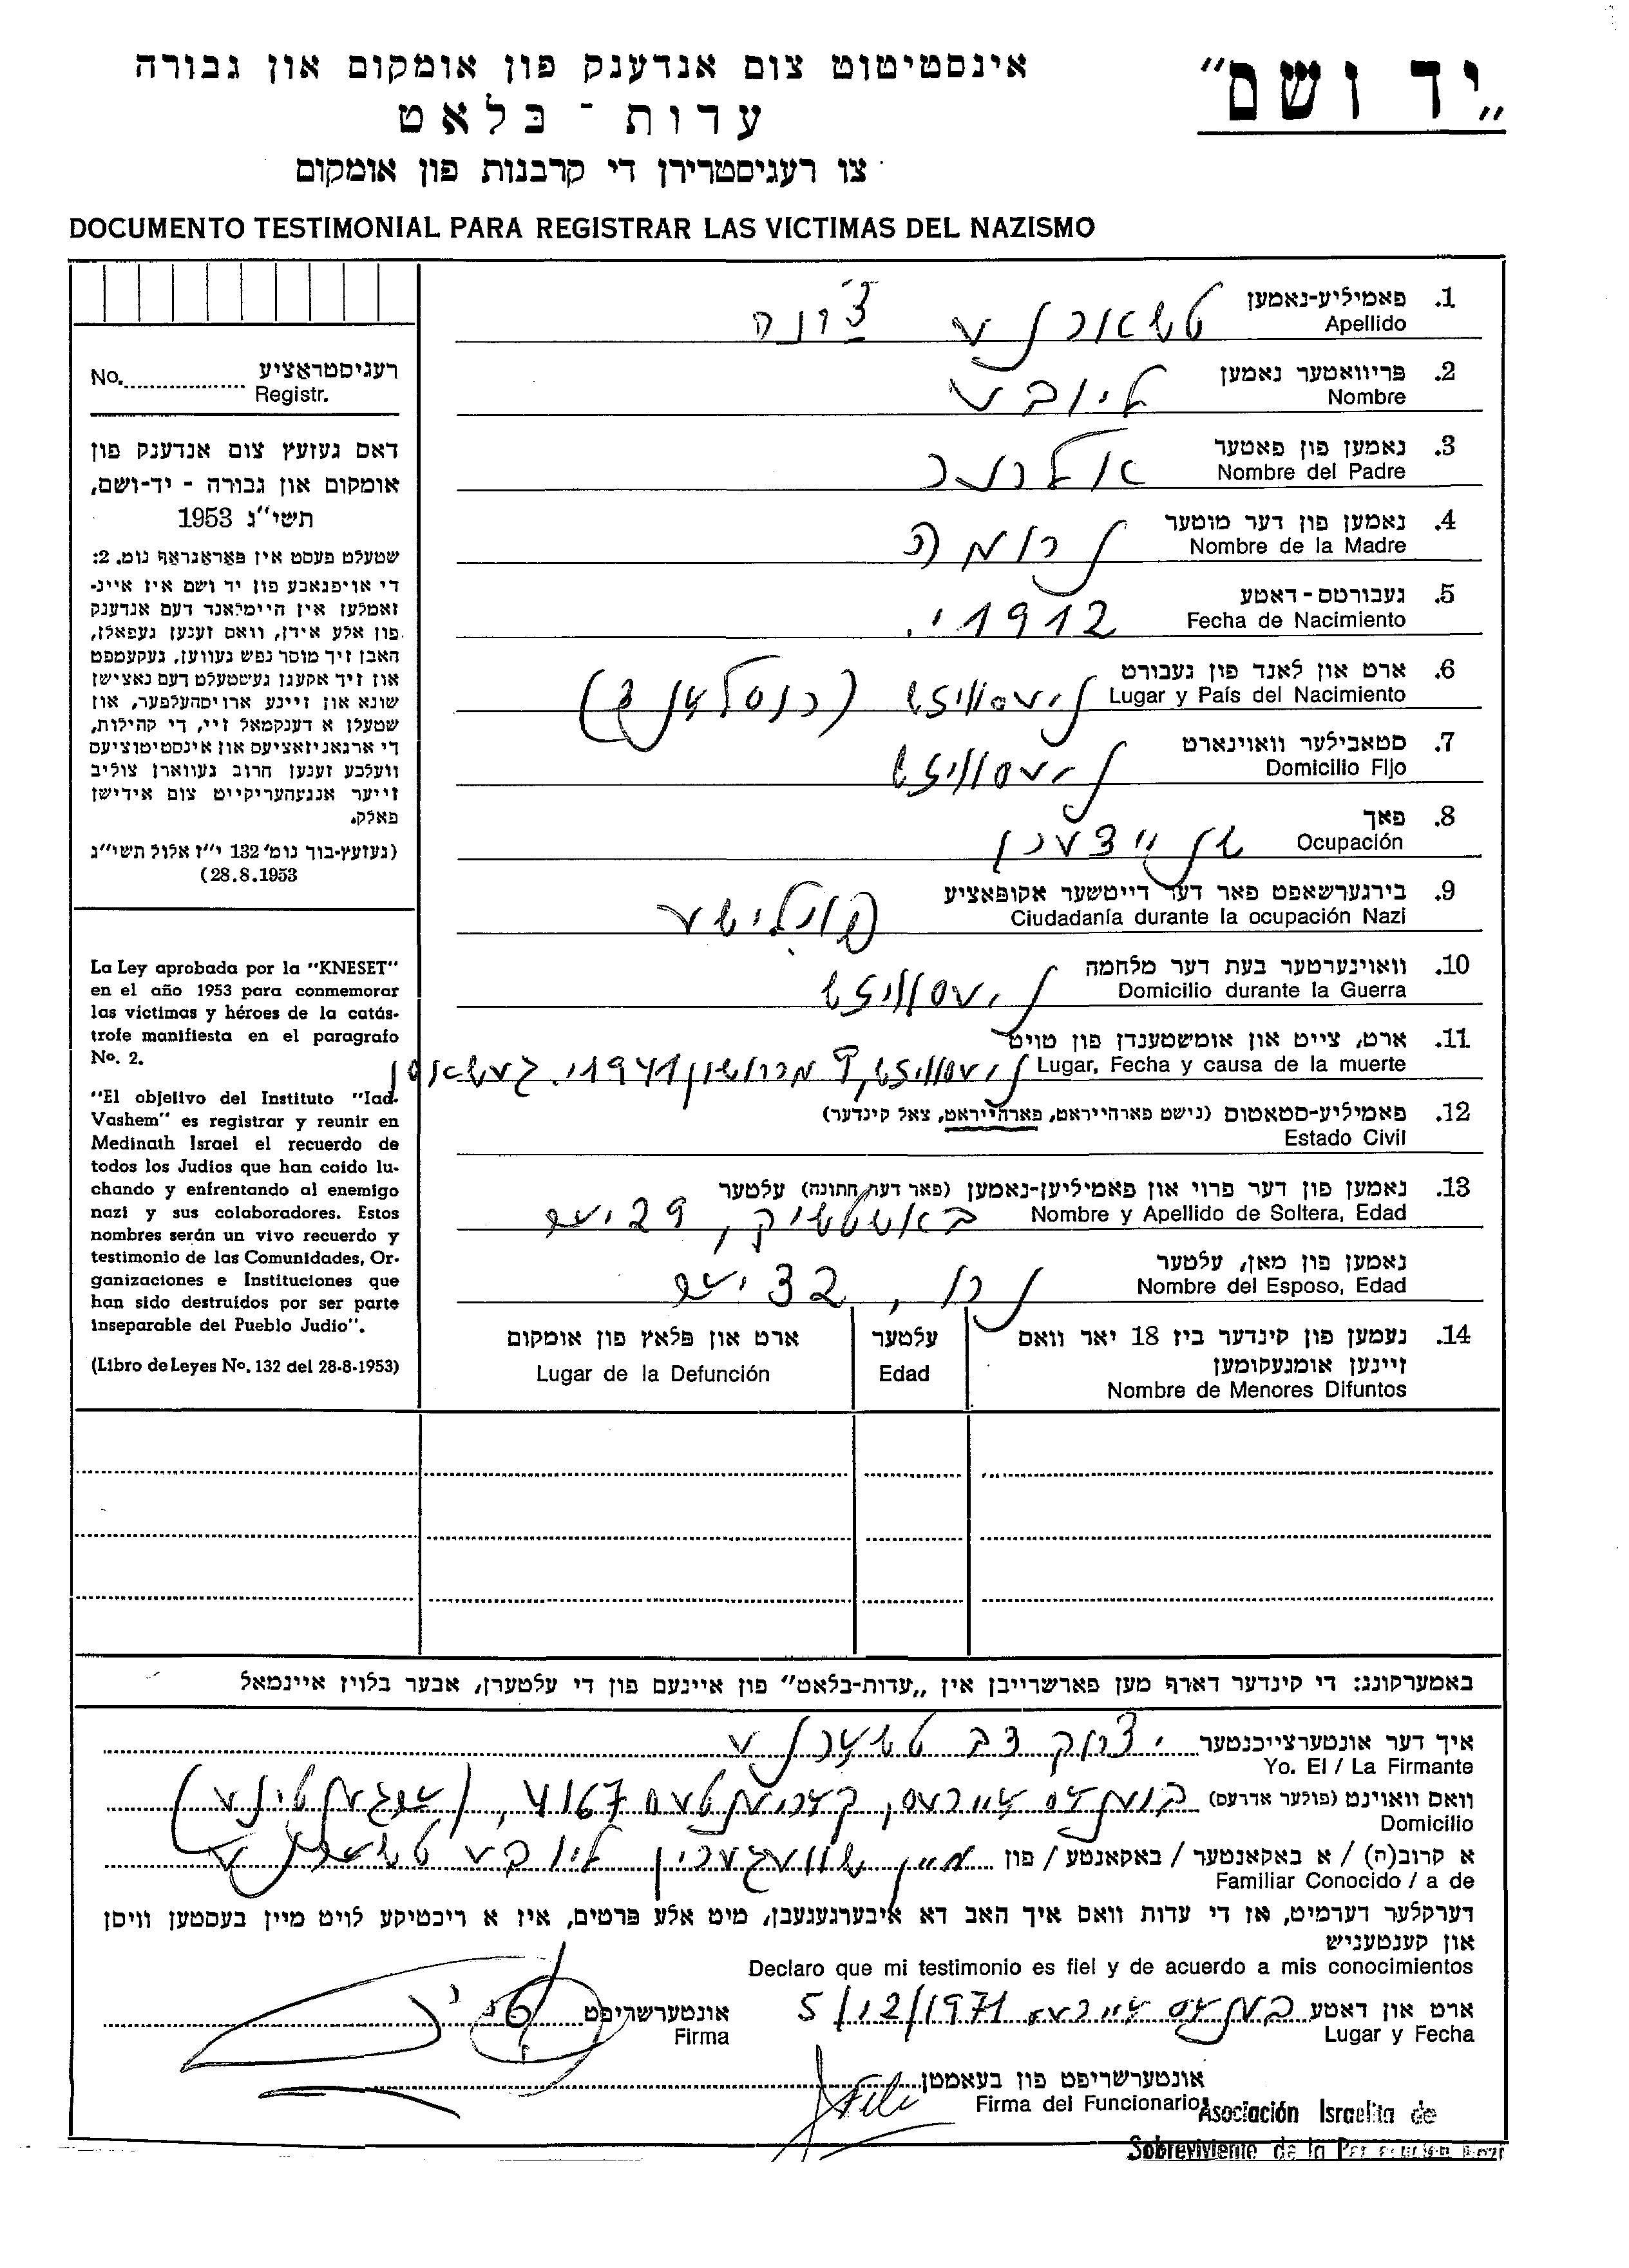 „יד ושם"
אינסטיטוט צום אנדענק פון אומקום און גבורה
עדות - בלאט
צו רעגיסטרירן די קרבנות פון אומקום
DOCUMENTO TESTIMONIAL PARA REGISTRAR LAS VICTIMAS DEL NAZISMO
רעגיסטראציע
No. Registr.
דאס געזעץ צום אנדענק פון
אומקום און גבורה - יד-ושם,
תשי"ג 1953
שטעלט פעסט אין פאראגראף נומ. 2:
די אויפגאבע פון יד ושם איז איינ-
זאמלען אין היימלאנד דעם אנדענק
פון אלע אידן, וואס זענען געפאלן,
האבן זיך מוסר נפש געווען, געקעמפט
און זיך אקעגן געשטעלט דעם נאצישן
שונא און זיינע ארויסהעלפער, און
שטעלן א דענקמאל זיי, די קהילות,
די ארגאניזאציעס און אינסטיטוציעס
וועלכע זענען חרוב געווארן צוליב
זייער אנגעהעריקייט צום אידישן
פאלק.
(געזעץ-בוך נומ' 132 י"ז אלול תשי"ג
28.8.1953)
La Ley aprobada por la "KNESET"
en el año 1953 para conmemorar
las víctimas y héroes de la catás-
trofe manifiesta en el paragrafo
No. 2.
"El objetivo del Instituto "Iad-
Vashem" es registrar y reunir en
Medinath Israel el recuerdo de
todos los Judíos que han caído lu-
chando y enfrentando al enemigo
nazi y sus colaboradores. Estos
nombres serán un vivo recuerdo y
testimonio de las Comunidades, Or-
ganizaciones e Instituciones que
han sido destruídos por ser parte
inseparable del Pueblo Judío".
(Libro de Leyes No. 132 del 28-8-1953)
1. פאמיליע-נאמען טשארנע
Apellido
2. פריוואטער נאמען ליובע
Nombre
3. נאמען פון פאטער
Nombre del Padre
4. נאמען פון דער מוטער נחמה
Nombre de la Madre
5. געבורטס-דאטע 1912י.
Fecha de Nacimiento
6. ארט און לאנד פון געבורט ניעסוויזש (רוסלאנד)
Lugar y País del Nacimiento
7. סטאבילער וואוינארט ניעסוויזש
Domicilio Fijo
8. פאך שניידערן
Ocupación
9. בירגערשאפט פאר דער דייטשער אקופאציע פוילישע
Ciudadanía durante la ocupación Nazi
10. וואוינערטער בעת דער מלחמה ניעסוויזש
Domicilio durante la Guerra
11. ארט, צייט און אומשטענדן פון טויט ניעסוויזש, 9 מרחשון 1941י. געשאסן
Lugar, Fecha y causa de la muerte
12. פאמיליע-סטאטוס (נישט פארהייראט, פארהייראט, צאל קינדער)
Estado Civil
13. נאמען פון דער פרוי און פאמיליען-נאמען (פאר דער חתונה) עלטער
Nombre y Apellido de Soltera, Edad , 29 יאר
נאמען פון מאן, עלטער
Nombre del Esposo, Edad נח, 32 יאר
14. נעמען פון קינדער ביז 18 יאר וואס עלטער ארט און פלאץ פון אומקום
זיינען אומגעקומען Edad Lugar de la Defunción
Nombre de Menores Difuntos
באמערקונג: די קינדער דארף מען פארשרייבן אין „עדות-בלאט" פון איינעם פון די עלטערן, אבער בלויז איינמאל
איך דער אונטערצייכנטער יצחק דב טשארנע
Yo. El / La Firmante
וואס וואוינט (פולער אדרעס) בוענאס איירעס, 4167, (ארגענטינע)
Domicilio
א קרוב(ה) / א באקאנטער / באקאנטע / פון מיין שוועגערין ליובע טשארנע
Familiar Conocido / a de
דערקלער דערמיט, אז די עדות וואס איך האב דא איבערגעגעבן, מיט אלע פרטים, איז א ריכטיקע לויט מיין בעסטען וויסן
און קענטעניש
Declaro que mi testimonio es fiel y de acuerdo a mis conocimientos
ארט און דאטע בוענאס איירעס 5/12/1971 אונטערשריפט
Lugar y Fecha Firma
אונטערשריפט פון בעאמטן
Firma del Funcionario
Asociación Israelita de
Sobreviviente de la